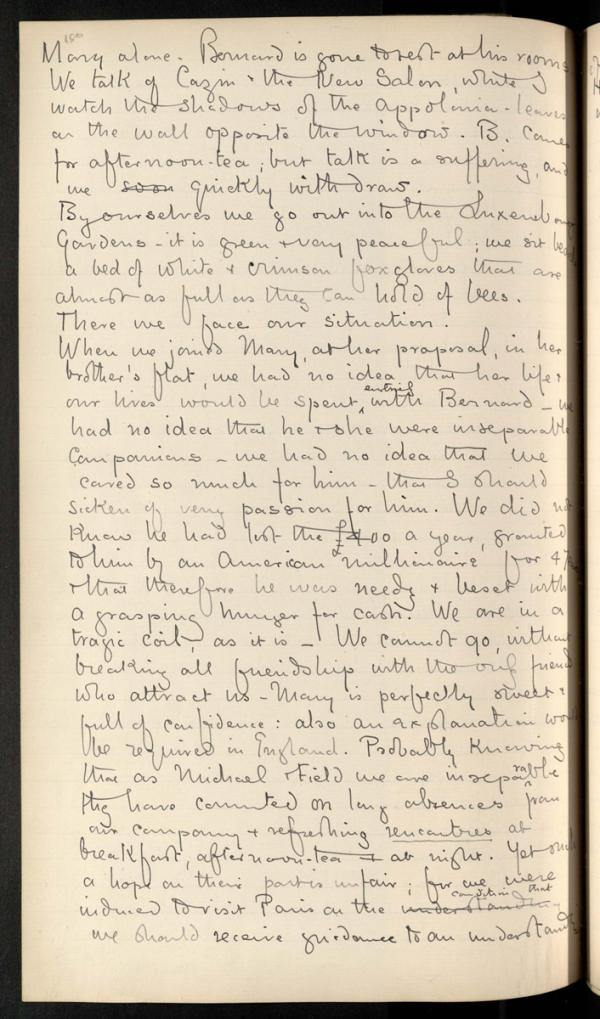 180
Mary alone. Bernard is gone to rest at his rooms
We talk of Cazin & the New Salon, while I
watch the shadows of the Appolonia-leaves
on the wall opposite the window. B. comes
for afternoon-tea; but talk is a suffering, and
we soon quickly withdraw.
By ourselves we go out into the Luxembourg
Gardens - it is green & very peaceful; we sit
a bed of white & crimson foxgloves that are
almost as full as they can hold of bees.
There we face our situation.
When we joined Mary, at her proposal, in her
brother's flat, we had no idea that her life &
entirely
our lives would be spent, with Bernard - we
had no idea that he & she were inseparable
Companions - we had no idea that we
cared so much for him - that I should
sicken of very passion for him. We did not
know he had lost the £ 00 a year, granted
to him by an American millionaire for
& that therefore he was needy & beset with
a grasping hunger for cash. We are in a
tragic coil, as it is - We cannot go, without
breaking all friendship with the only friends
who attract us - Mary is perfectly sweet &
full of confidence: also an explanation would
be required in England. Probably knowing
that as Michael Field we are inseparable
they have counted on long absences from
our company & refreshing rencontres at
breakfast, afternoon-tea & at night. Yet such
a hope on their part is unfair; for we were
condition that
induced to visit Paris on the understanding
we should receive guidance to an understanding